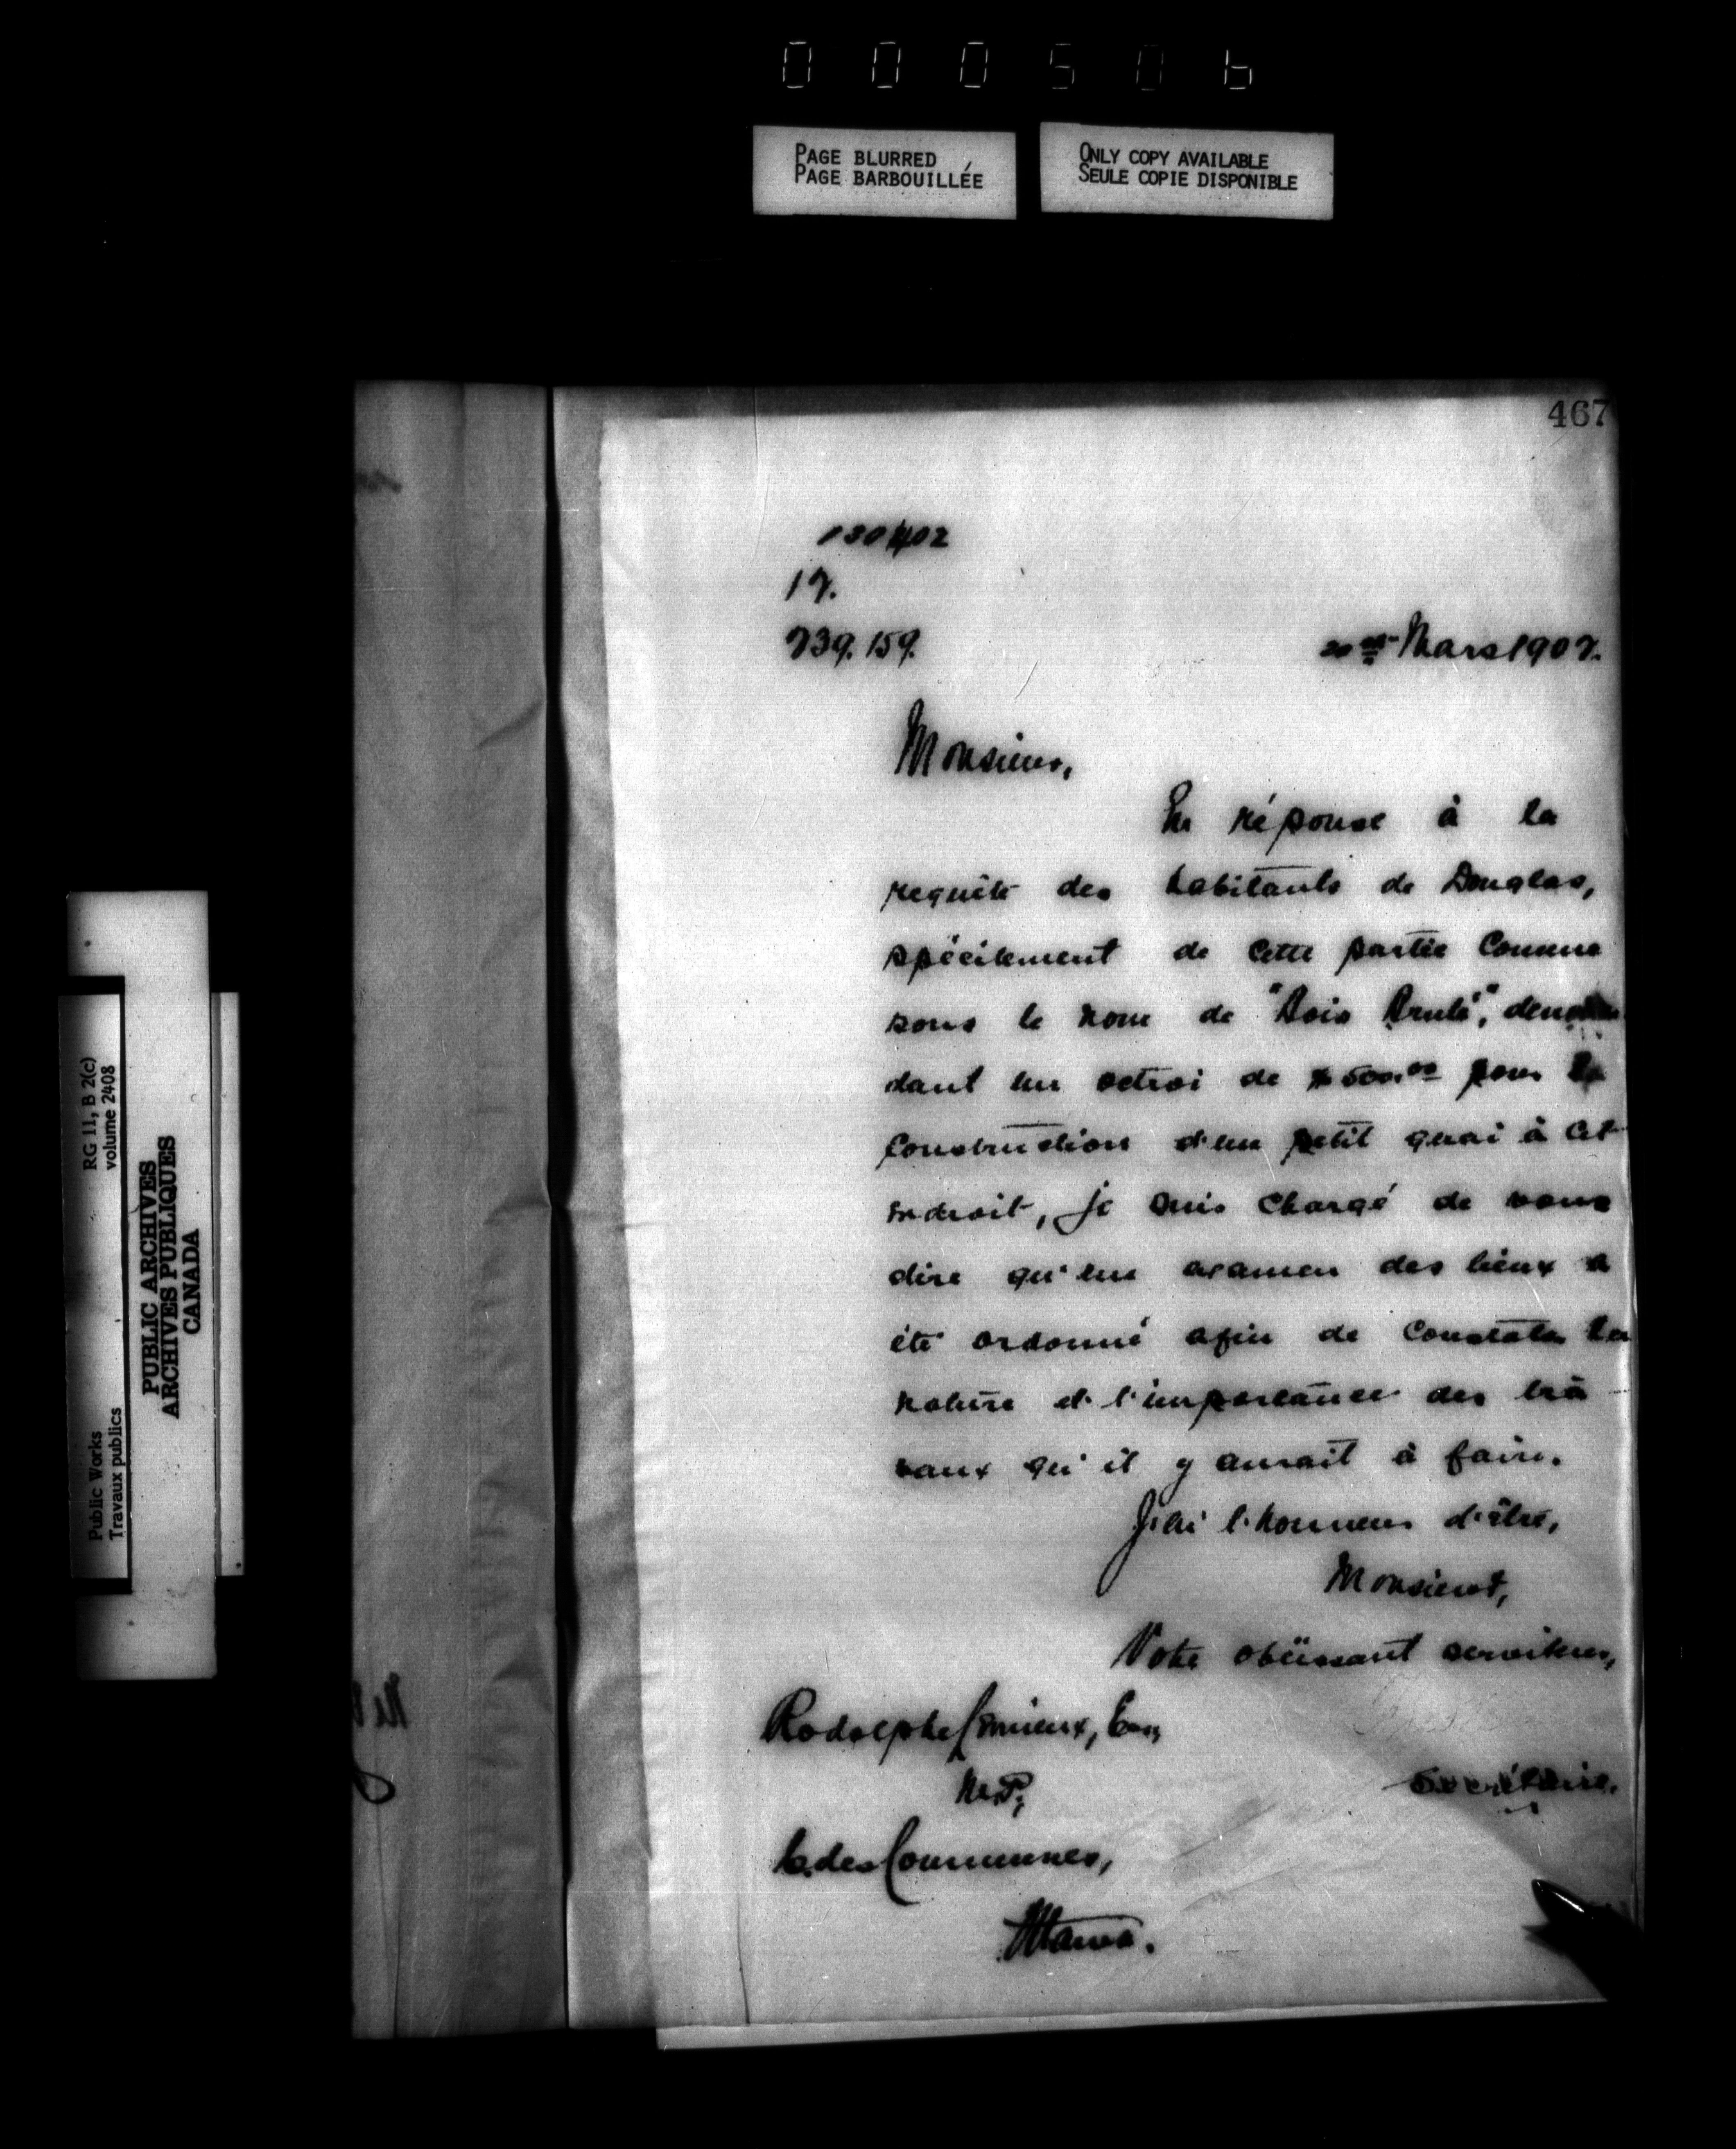 000506
PAGE BLURRED
PAGE BARBOUILLÉE
ONLY COPY AVAILABLE
SEULE COPIE DISPONIBLE
467
17.
739.159.
Mars 1907.
Monsieur,
En réponse à la
requête des habitants de Douglas,
spécilement de cette partie connue
sous le nom de "Bois Brulé",
dant un octroi de $500.00 pour la
construction d'un petit quai à cet
endroit, je suis chargé de vous
dire qu'un examen des lieux a
été ordonné afin de constater la
nature et l'importance des tra
vaux qu'il y aurait à faire.
J'ai l'honneur d'être,
Monsieur,
Votre obéissant serviteur,
Rodolphe Lemieux, Esq.,
M.P.,
Secrétaire.
C. des Communes,
Ottawa.
RG 11, B 2(c)
volume 2408
PUBLIC ARCHIVES
ARCHIVES PUBLIQUES
CANADA
Public Works
Travaux publics